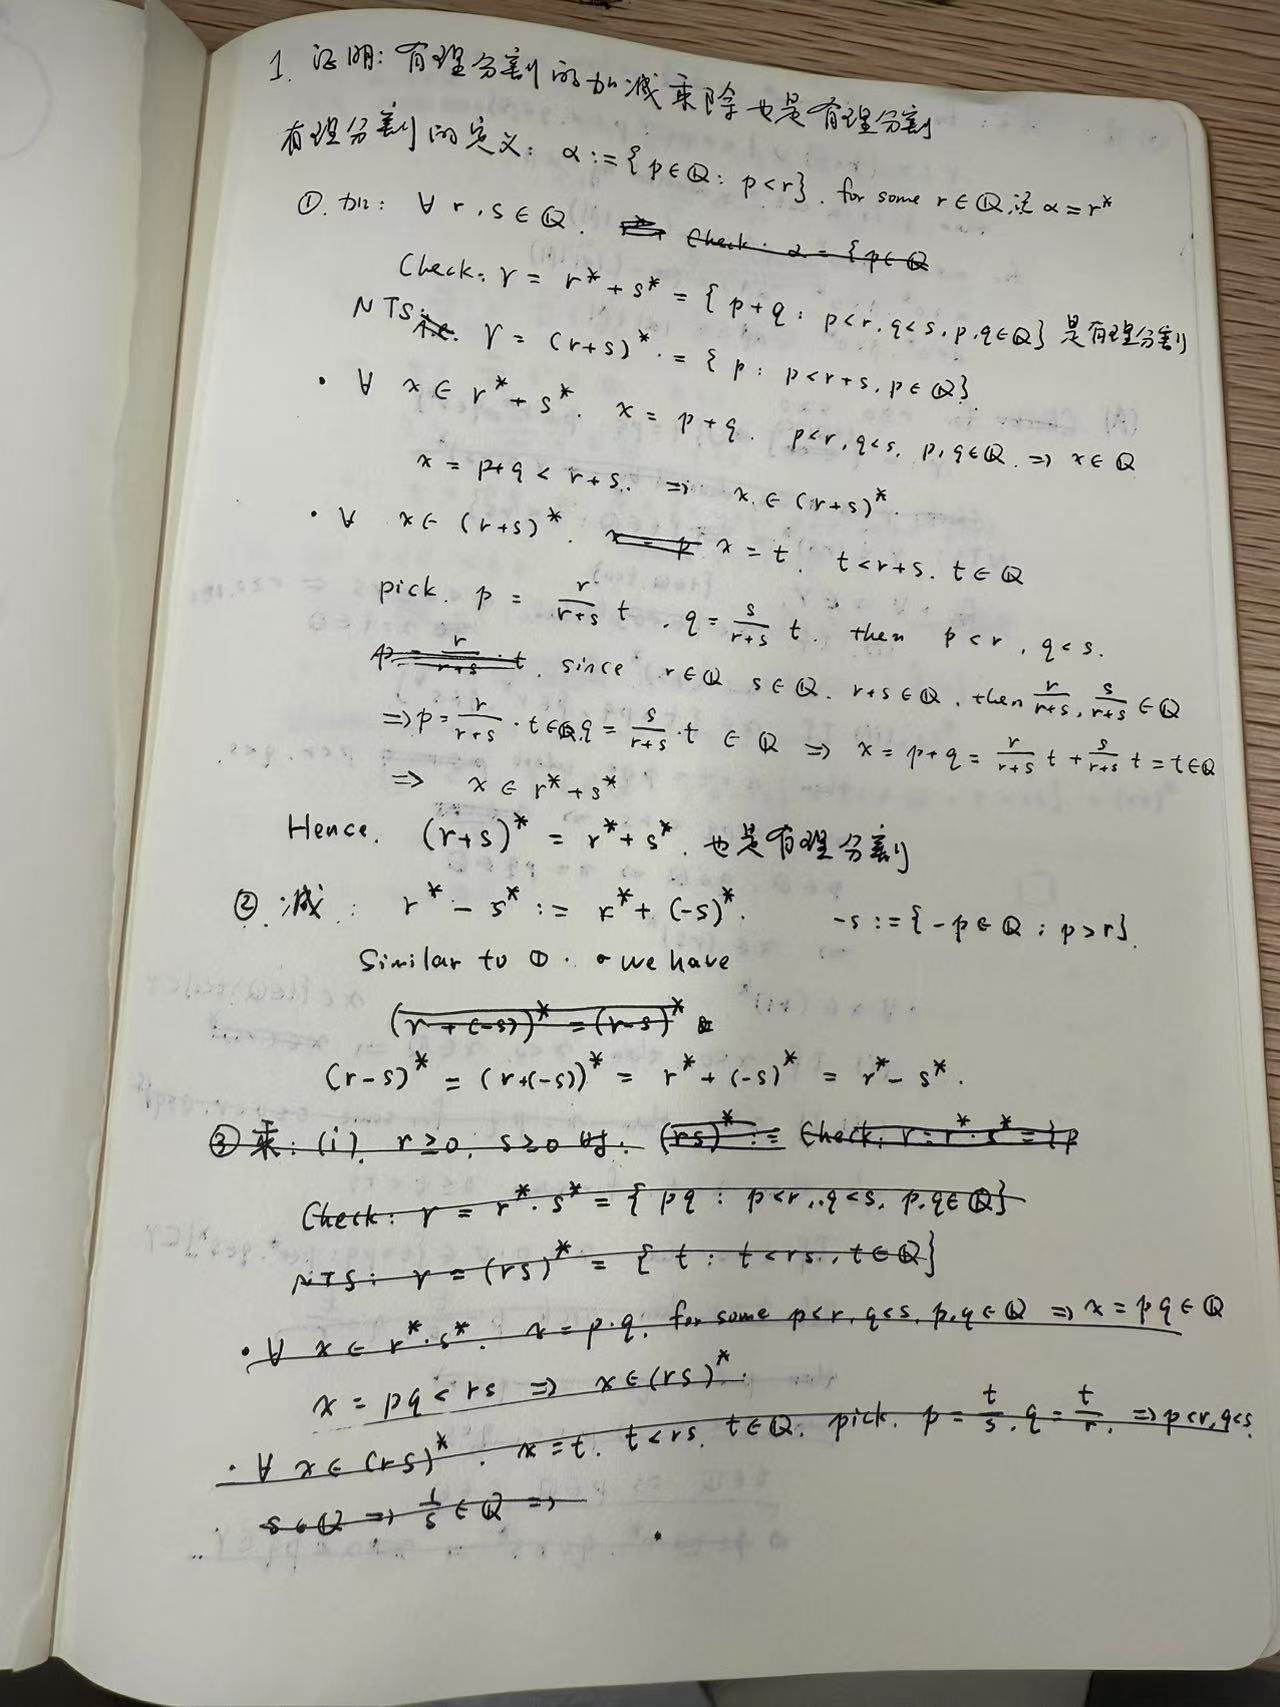 1. 证明: 有理分割的加减乘除也是有理分割
有理分割的定义: α := {p∈ℚ: p<r}. for some r∈ℚ, 记 α = r*
①. 加: ∀ r, s ∈ ℚ. Check: α = {p∈ℚ
Check: γ = r* + s* = {p+q: p<r, q<s, p,q∈ℚ} 是有理分割
NTS: i.e. γ = (r+s)* = {p: p<r+s, p∈ℚ}
• ∀ x ∈ r* + s*. x = p+q. p<r, q<s, p,q∈ℚ ⇒ x∈ℚ
x = p+q < r+s. ⇒ x ∈ (r+s)*.
• ∀ x∈ (r+s)*. x = p x = t. t<r+s. t∈ℚ
pick. p = r/(r+s) t, q = s/(r+s) t. then p<r, q<s.
p = r/(r+s) · t, since r∈ℚ s∈ℚ. r+s∈ℚ, then r/(r+s), s/(r+s) ∈ℚ
⇒ p = r/(r+s) · t∈ℚ, q = s/(r+s) · t ∈ ℚ ⇒ x = p+q = r/(r+s) t + s/(r+s) t = t∈ℚ
⇒ x ∈ r*+s*
Hence. (r+s)* = r*+s*. 也是有理分割
② 减: r* - s* := r* + (-s)*. -s := {-p∈ℚ: p>r}.
Similar to ①. we have
(r+(-s))* = (r-s)*
(r-s)* = (r+(-s))* = r* + (-s)* = r* - s*.
③ 乘: (i). r≥0, s≥0 时. (rs)* := Check: γ = r*·s* = {p
Check: γ = r*·s* = {pq: p<r, q<s, p,q∈ℚ}
NTS: γ = (rs)* = {t: t<rs, t∈ℚ}
• ∀ x ∈ r*·s*. x = p·q. for some p<r, q<s, p,q∈ℚ ⇒ x = pq∈ℚ
x = pq < rs ⇒ x∈(rs)*.
• ∀ x∈ (rs)*. x = t. t<rs. t∈ℚ. pick. p = t/s, q = t/r, ⇒ p<r, q<s.
s∈ℚ ⇒ 1/s ∈ℚ ⇒